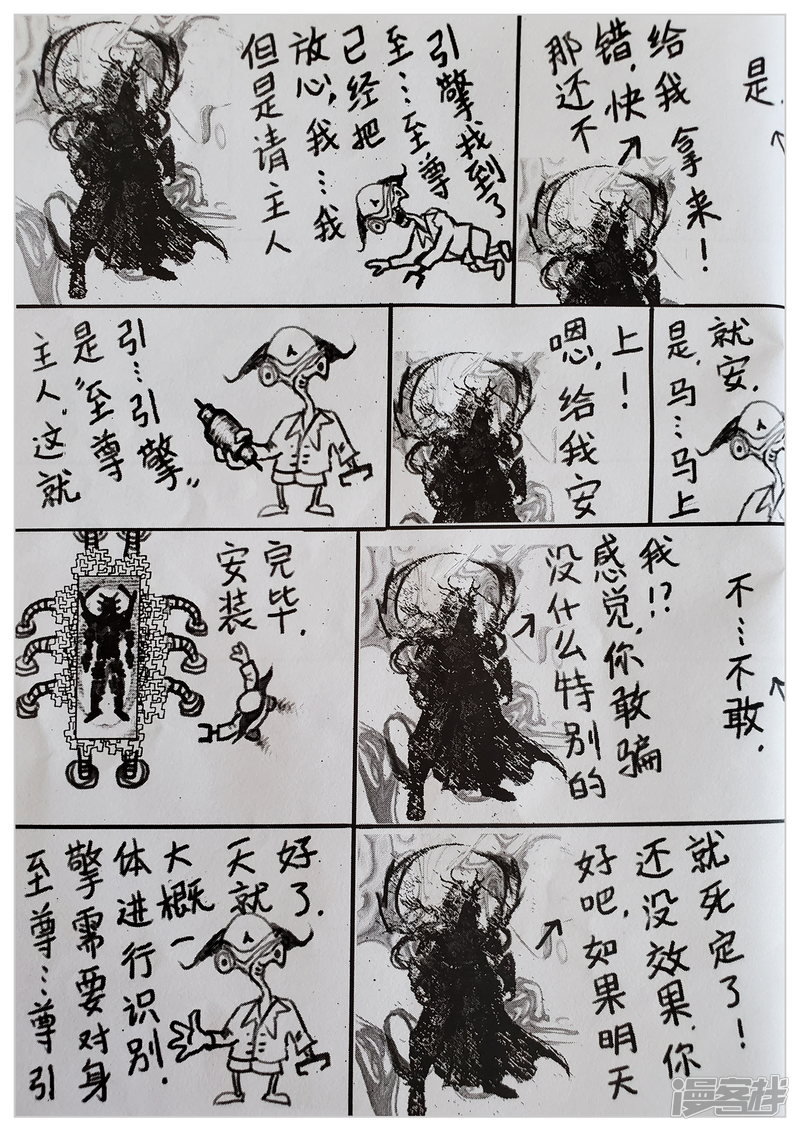 但是请主人
放心,我…我
已经把
至…至尊
引擎找到了
那还不
错,快
给我拿来!
是.
主人,这就
是“至尊
引…引擎”
嗯,给我安
上!
是,马…马上
就安.
安装
完毕.
没什么特别的
感觉,你敢骗
我!?
不…不敢.
至尊…尊引
擎需要对身
体进行识别.
大概一
天就
好了.
好吧,如果明天
还没效果,你
就死定了!
漫客栈